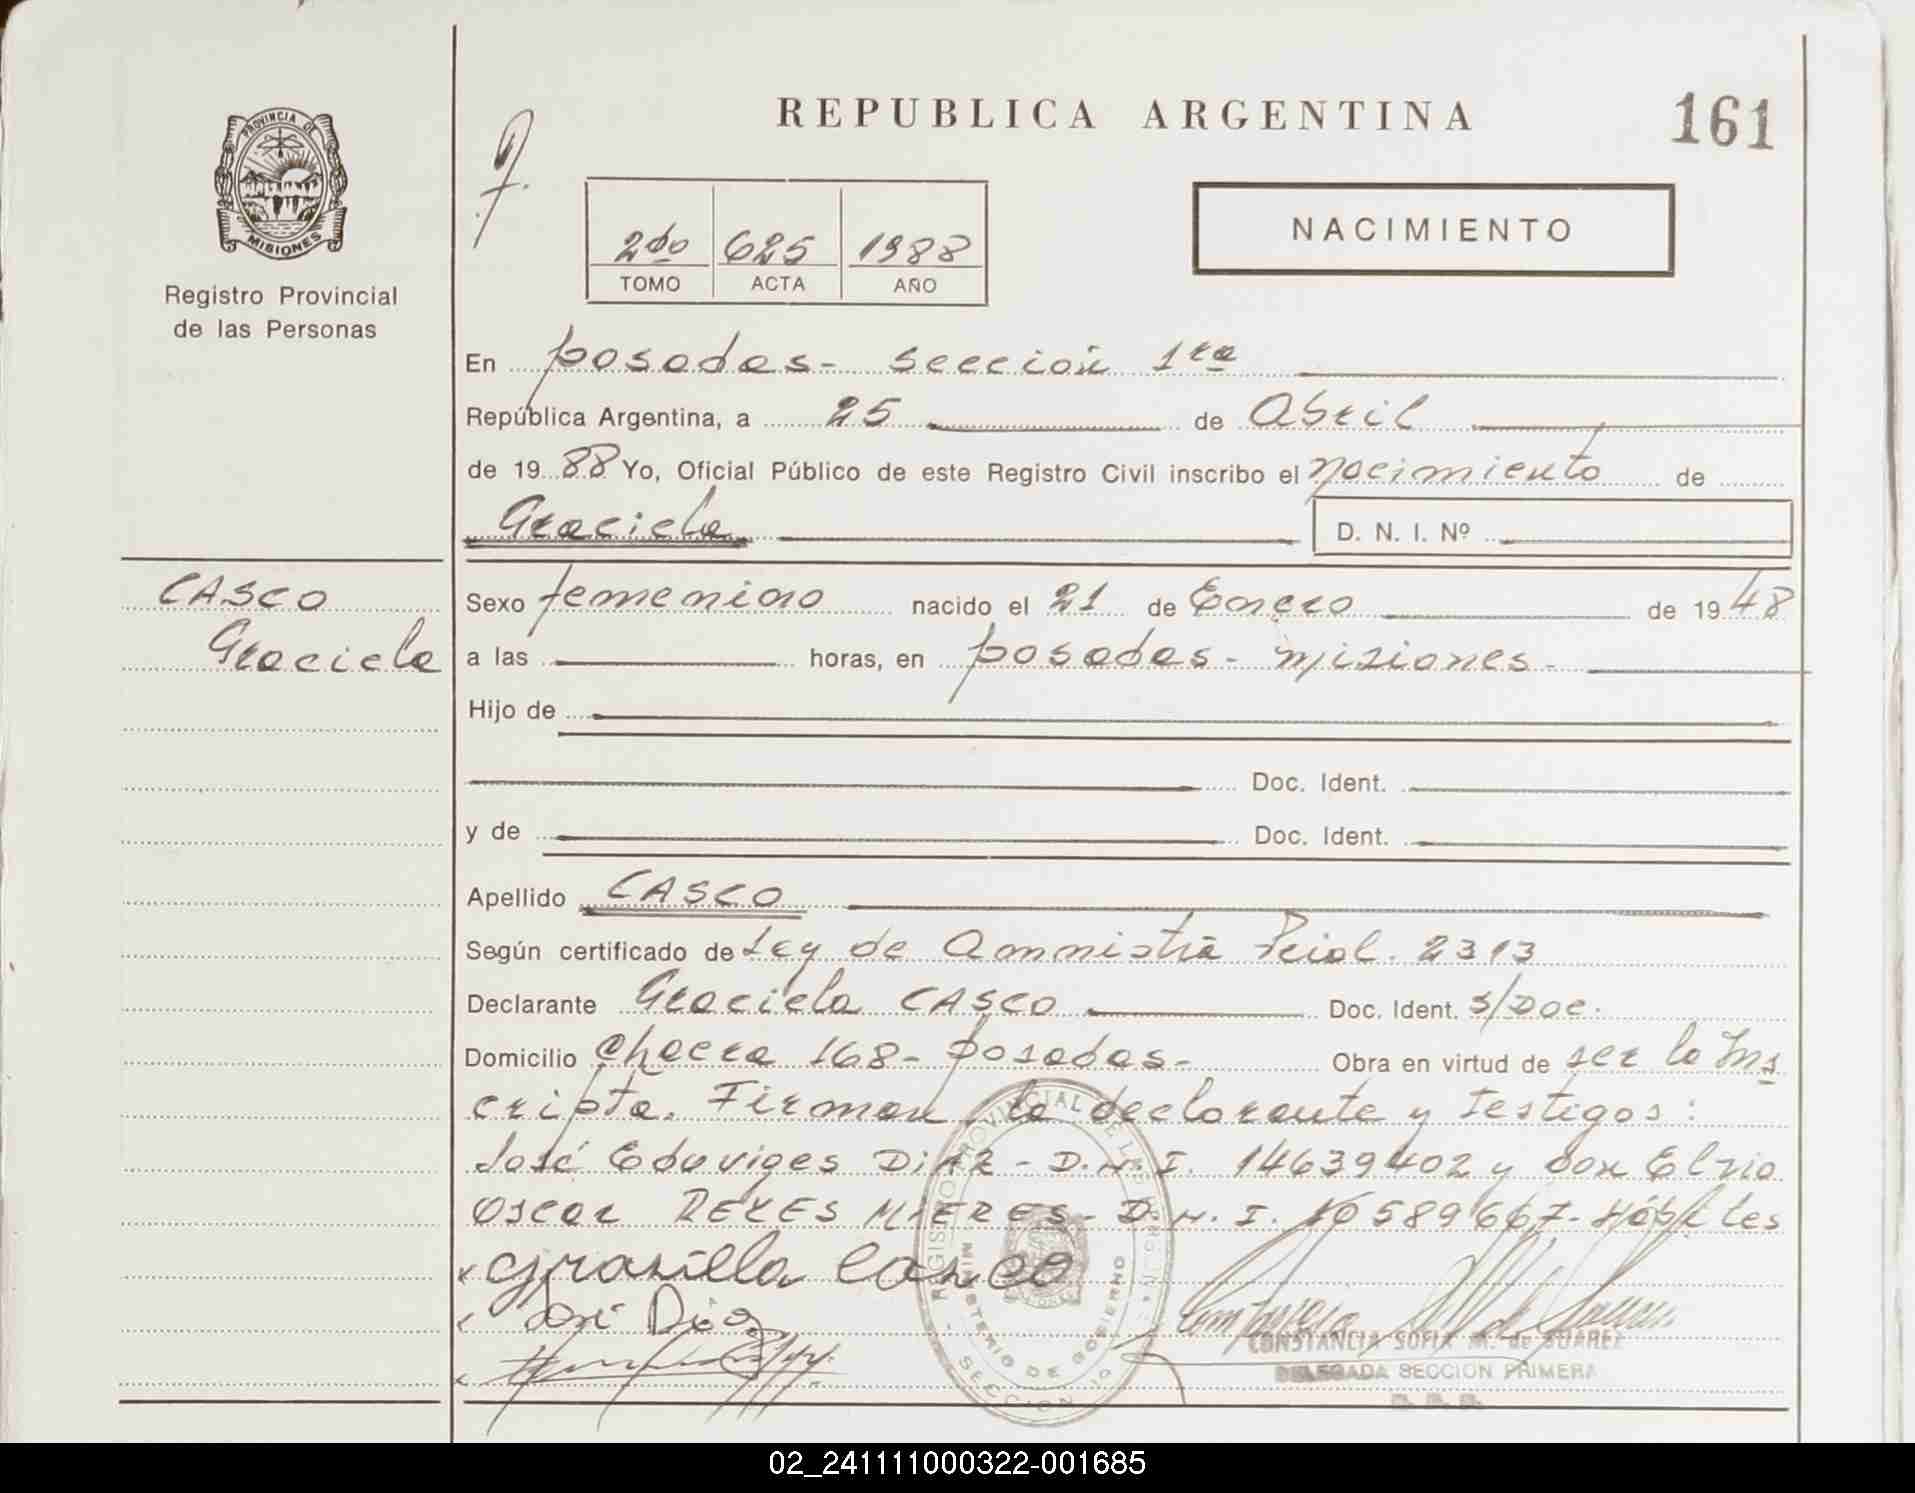 REPUBLICA ARGENTINA
161
PROVINCIA DE
MISIONES
Registro Provincial
de las Personas
2do 625 1988
TOMO ACTA AÑO
NACIMIENTO
En Posadas - Sección 1ra
República Argentina, a 25 de Abril
de 1988 Yo, Oficial Público de este Registro Civil inscribo el nacimiento de
Graciela D. N. I. Nº
CASCO
Graciela
Sexo femenino nacido el 21 de Enero de 1948
a las horas, en Posadas - Misiones -
Hijo de
Doc. Ident.
y de Doc. Ident.
Apellido CASCO
Según certificado de Ley de Ammistía Pcial. 2313
Declarante Graciela CASCO Doc. Ident. S/Doc.
Domicilio Chacra 168 - Posadas - Obra en virtud de ser la Ins
cripta. Firman la declarante y testigos:
José Eduviges DIAZ - D.N.I. 14639402 y don Elvio
Oscar REYES MIERES - D.N.I. 10589667 - Hábiles
José Diaz
REGISTRO PROVINCIAL DE LAS PERSONAS
MINISTERIO DE GOBIERNO
SECCION 1º
CONSTANCIA SOFIA M. de SUAREZ
DELEGADA SECCION PRIMERA
02_241111000322-001685